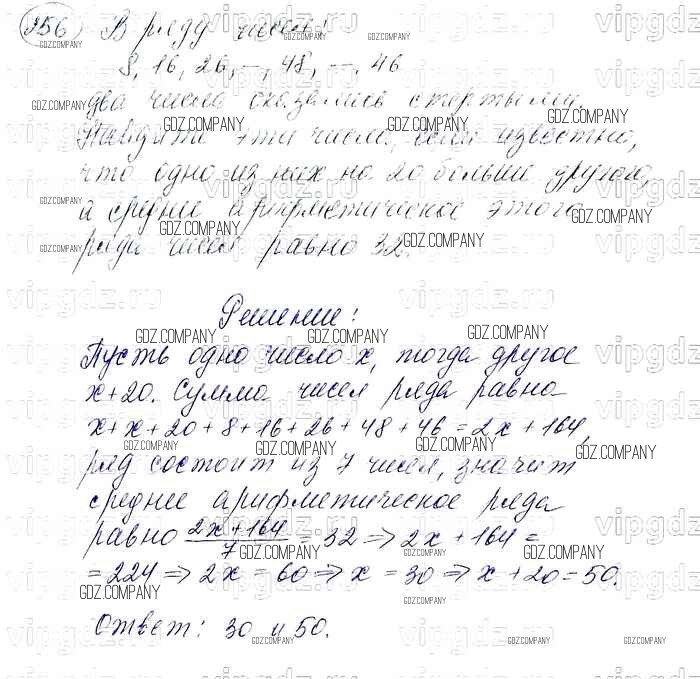 356 В ряду чисел:
8, 16, 26, –, 48, –, 46
два числа оказались стертыми.
Найдите эти числа, если известно,
что одно из них на 20 больше другого,
а среднее арифметическое этого
ряда чисел равно 32.
Решение:
Пусть одно число x, тогда другое
x+20. Сумма чисел ряда равна
x+x+20+8+16+26+48+46=2x+164,
ряд состоит из 7 чисел, значит
среднее арифметическое ряда
равно (2x+164)/7 = 32 => 2x+164=
=224 => 2x=60 => x=30 => x+20=50.
Ответ: 30 и 50.
GDZ.COMPANY
vipgdz.ru